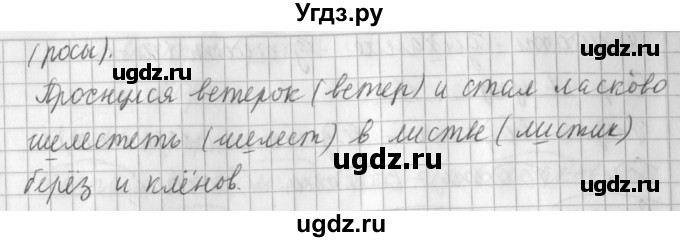 Угдз.ру
(росы).
ugdz.ru ugdz.ru
Проснулся ветерок (ветер) и стал ласково
шелестеть (шелест) в листве (листик)
ugdz.ru ugdz.ru
берёз и клёнов.
ugdz.ru ugdz.ru